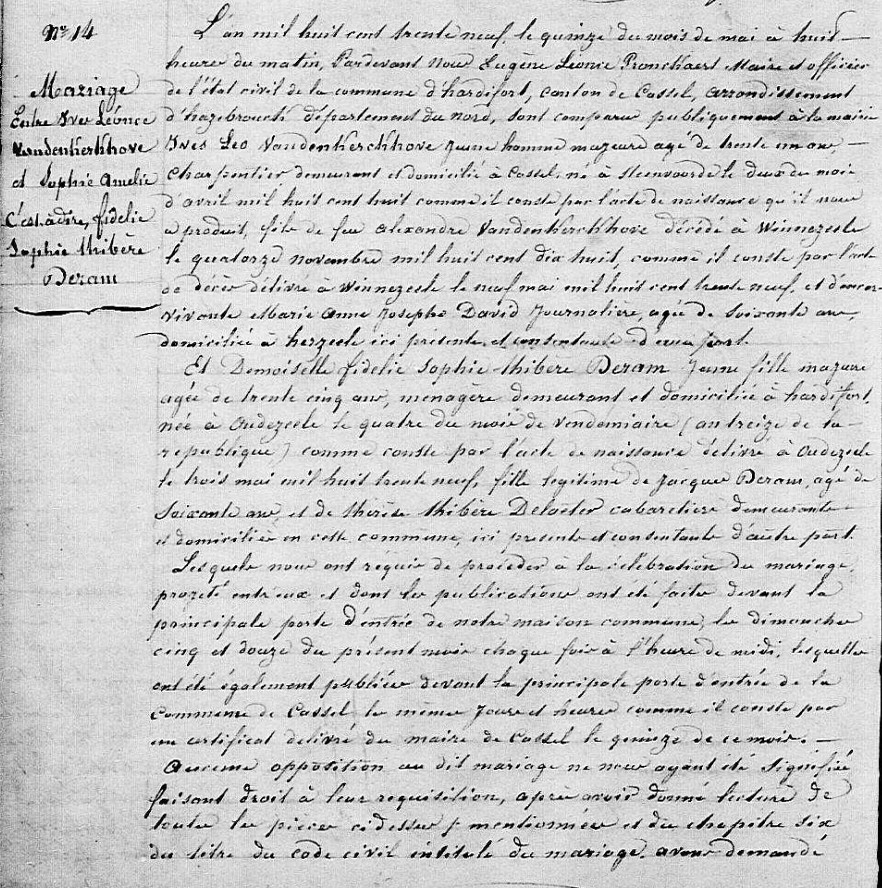 N° 14
Mariage
Entre Ives Léonce
Vandenkerkhove
et Sophie Amelie
C'est à dire, fidelie
Sophie thibère
Deram
L'an mil huit cent trente neuf, le quinze du mois de mai à huit
heures du matin, Pardevant Nous Eugène Léonce Ronckaert Maire et officier
de l'état civil de la commune d'hardifort, canton de Cassel, arrondissement
d'hazebrouck département du nord, sont comparus publiquement à la mairie
Ives Leo Vandenkerckhove Jeune homme majeure agé de trente un ans,
Charpentier demeurant et domicilié à Cassel, né à Steenvoorde le deux du mois
d'avril mil huit cent huit comme il conste par l'acte de naissance qu'il nous
a produit, fils de feu alexandre Vandenkerckhove décédé à Winnezeele
le quatorze novembre mil huit cent dix huit, comme il conste par l'acte
de décès délivré à Winnezeele le neuf mai mil huit cent trente neuf, et d'encore
vivante Marie Anne Josephe David Journalière, agée de Soixante ans,
domiciliée à herzeele ici présente et consentante d'une part.
Et Demoiselle fidelie Sophie thibère Deram Jeune fille majeure
agée de trente cinq ans, menagère demeurant et domiciliée à hardifort,
née à Oudezeele le quatre du mois de vendémiaire (an treize de la
republique) comme conste par l'acte de naissance délivré à Oudezeele
le trois mai mil huit trente neuf, fille legitime de Jacques Deram, agé de
Soixante ans, et de thérèse thibère Delaeter cabaretiers demeurants
et domiciliés en cette commune, ici presents et consentants d'autre part.
Lesquels nous ont réquis de procéder à la célébration du mariage
projeté entr'eux et dont les publications ont été faites devant la
principale porte d'entrée de notre maison commune, les dimanches
cinq et douze du présent mois chaque fois à l'heure de midi, lesquelles
ont été également publiées devant la principale porte d'entrée de la
Commune de Cassel les mêmes Jours et heures comme il conste par
un certificat delivré du maire de Cassel le quinze de ce mois.
Aucune opposition au dit mariage ne nous ayant été Signifiée
faisant droit à leur requisition, après avoir donné lecture de
toutes les pieces cidessus mentionnées et du chapitre six
du titre du code civil intitulé du mariage, avons demandé